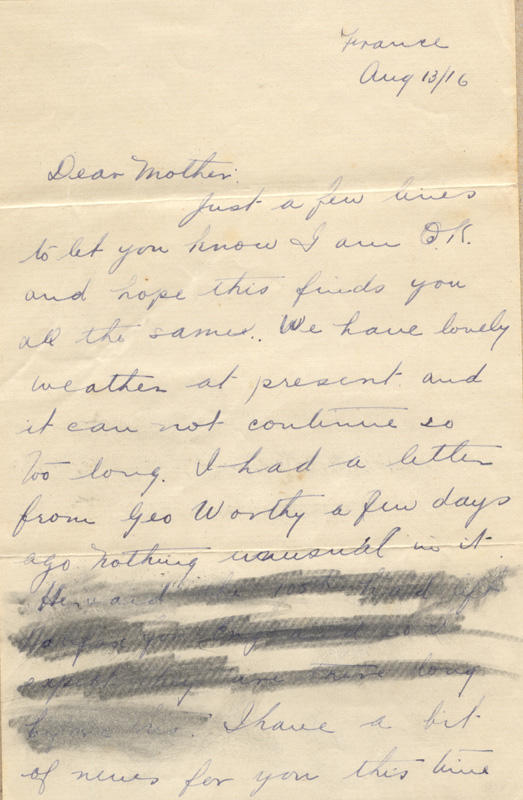 France
Aug 13/16
Dear Mother.
Just a few lines
to let you know I am O.K.
and hope this finds you
all the same. We have lovely
weather at present and
it can not continue so
too long. I had a letter
from Geo Worthy a few days
ago nothing unusual in it.
He said the 100th had left
they are there long
before this. I have a bit
of news for you this time